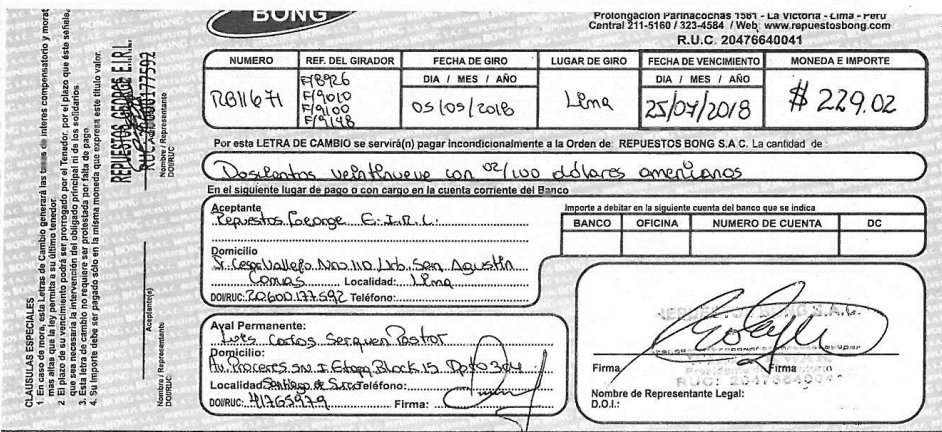 BONG
Prolongación Parinacochas 1561 - La Victoria - Lima - Perú
Central 211-5160 / 323-4584 / Web: www.repuestosbong.com
R.U.C. 20476640041
NUMERO
REF. DEL GIRADOR
FECHA DE GIRO
LUGAR DE GIRO
FECHA DE VENCIMIENTO
MONEDA E IMPORTE
DIA / MES / AÑO
DIA / MES / AÑO
RB11671
F/8926
F/9010
F/9100
F/9148
05/05/2018
Lima
25/07/2018
$ 229.02
Por esta LETRA DE CAMBIO se servirá(n) pagar Incondicionalmente a la Orden de: REPUESTOS BONG S.A.C. La cantidad de
Doscientos veintinueve con 02/100 dólares americanos
En el siguiente lugar de pago o con cargo en la cuenta corriente del Banco
Aceptante
Repuestos George E.I.R.L.
Domicilio
Jr. Cesar Vallejo Nro 110 Urb. San Agustín
Comas Localidad: Lima
DOI/RUC: 20600177592 Teléfono:
Importe a debitar en la siguiente cuenta del banco que se indica
BANCO
OFICINA
NUMERO DE CUENTA
DC
Aval Permanente:
Luis Carlos Serquen Pastor
Domicilio:
Av. Proceres S/N. I Etapa Block 15 Dpto 304
Localidad: Santiago de Surco Teléfono:
DOI/RUC: 41765979 Firma:
S.A.C.
Firma
Firma
RUC: 20476640041
Nombre de Representante Legal:
D.O.I.:
CLAUSULAS ESPECIALES
1. En caso de mora, esta Letras de Cambio generará las tasas de interes compensatorio y morat
mas altas que la ley permita a su último tenedor.
2. El plazo de su vencimiento podrá ser prorrogado por el Tenedor, por el plazo que éste señale,
que sea necesaria la intervención del obligado principal ni de los solidarios
3. Esta letra de cambio no requiere ser protestada por falta de pago
4. Su importe debe ser pagado sólo en la misma moneda que expresa este título valor.
Aceptante(s)
Nombre / Representantes
DOI/RUC:
REPUESTOS GEORGE E.I.R.L.
RUC 20600177592
Nombre / Representante
DOI/RUC